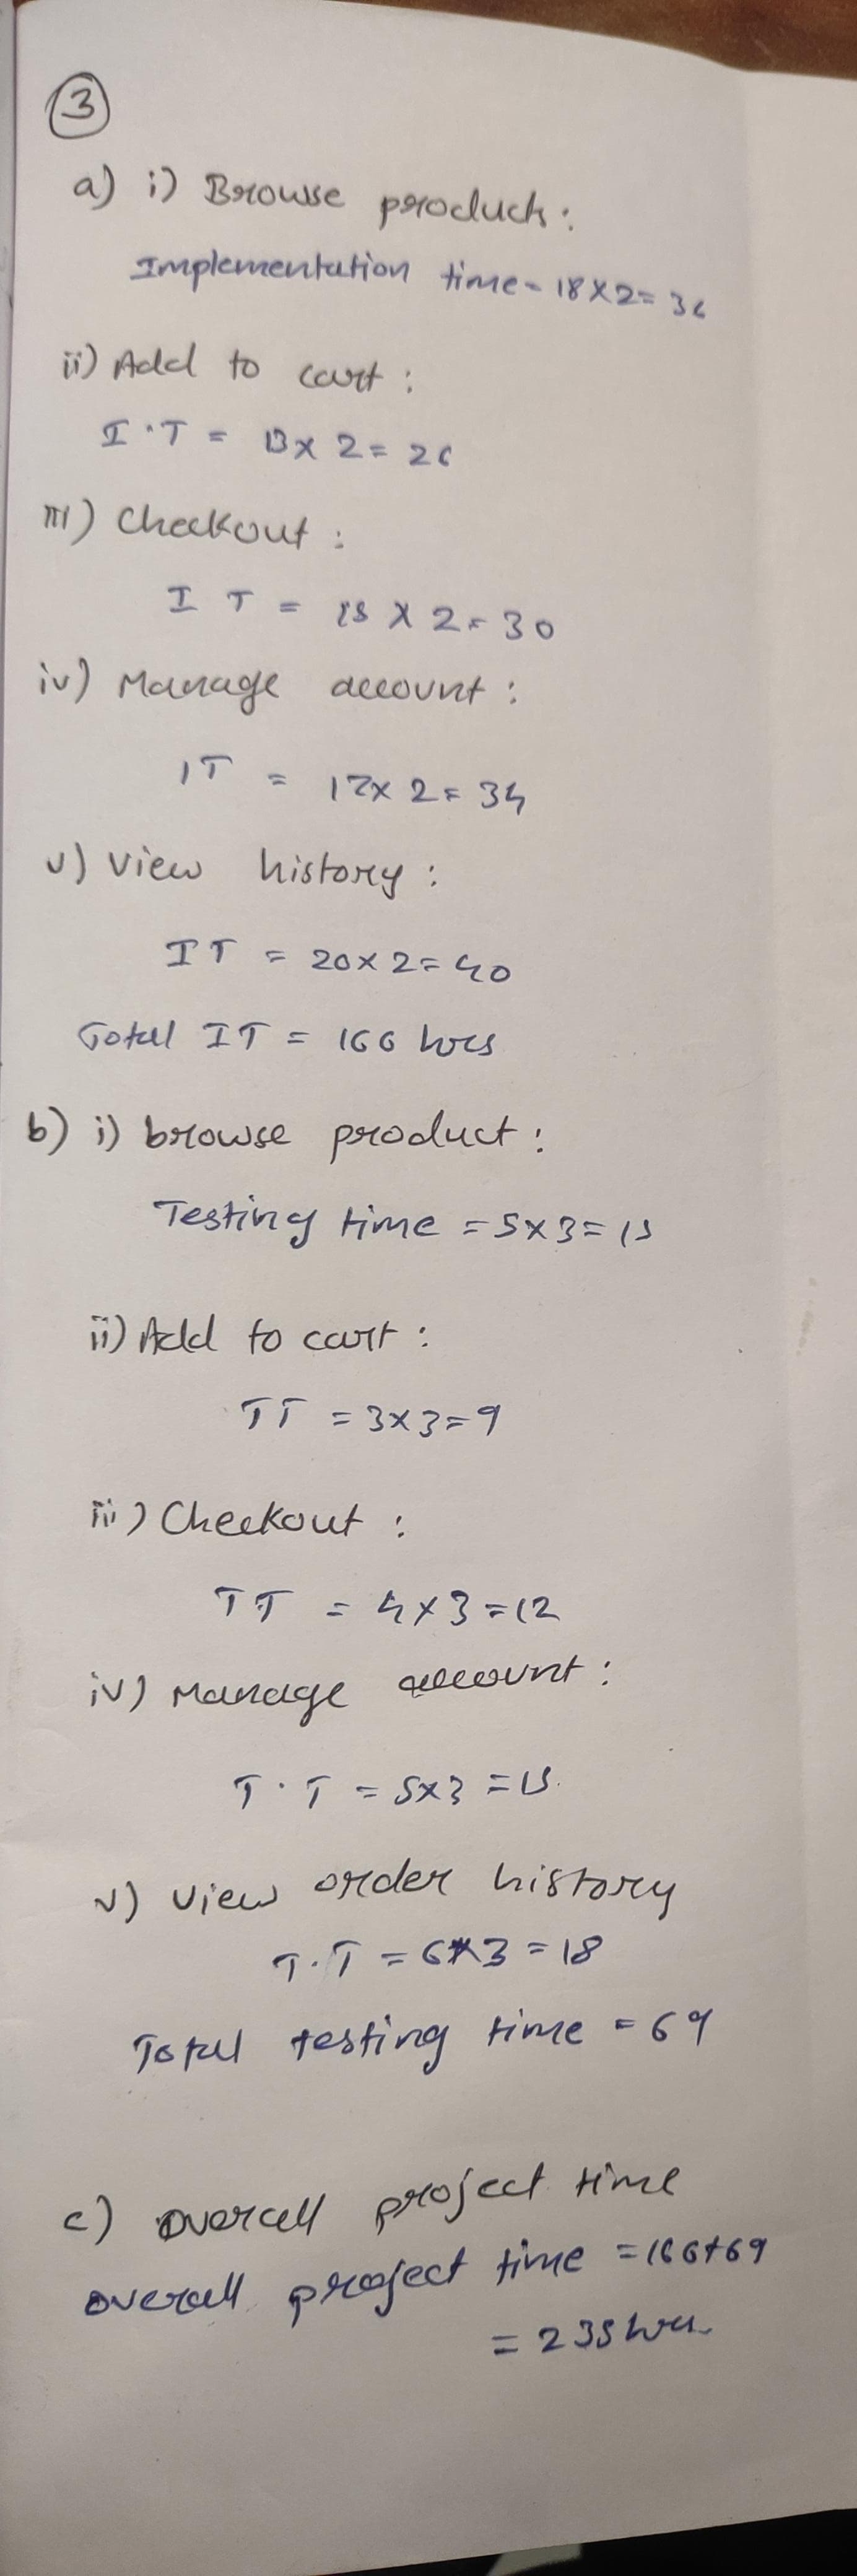 3
a) i) Browse product :
Implementation time = 18 X 2 = 36
ii) Add to cart :
I.T = 13 x 2 = 26
iii) Checkout :
I T = 15 X 2 = 30
iv) Manage account :
IT = 17 x 2 = 34
v) View history :
IT = 20 x 2 = 40
Total IT = 166 hrs
b) i) browse product :
Testing time = 5 x 3 = 15
ii) Add to cart :
TT = 3 x 3 = 9
iii) Checkout :
TT = 4 x 3 = 12
iv) Manage account :
T.T = 5 x 3 = 15
v) View order history
T.T = 6 * 3 = 18
Total testing time = 69
c) overall project time
overall project time = 166 + 69
= 235 hrs